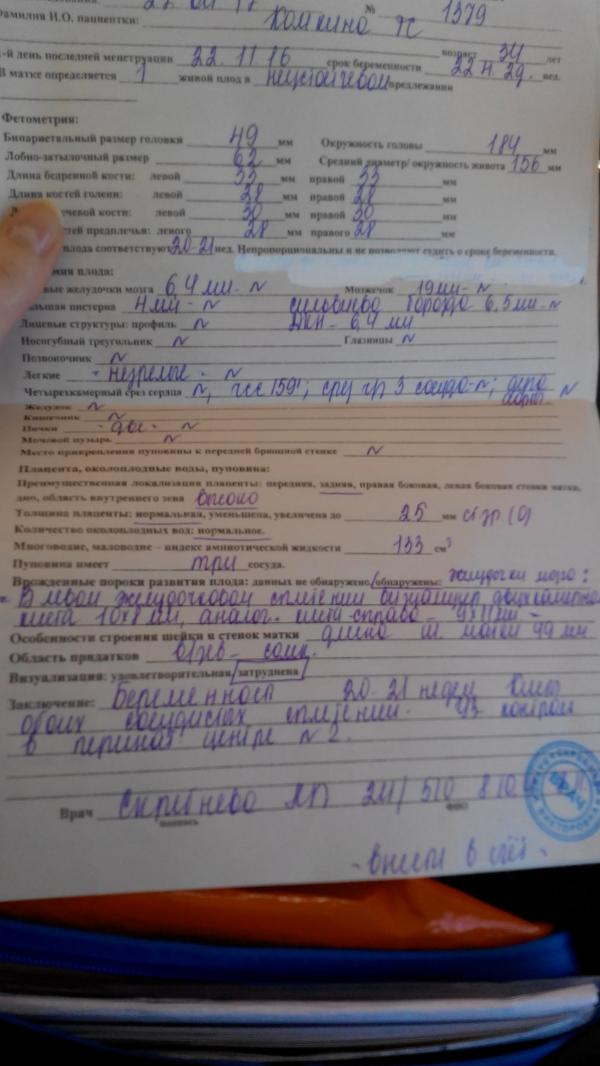 фамилия И.О. пациентки: № 1379
1-й день последней менструации 22.11.16 срок беременности 22 н. нед. возраст 34 лет
В матке определяется 1 живой плод в неустойчивом предлежании
Фетометрия:
Бипариетальный размер головки 49 мм Окружность головы 184 мм
Лобно-затылочный размер 62 мм Средний диаметр/ окружность живота 156 мм
Длина бедренной кости: левой 33 мм правой 33 мм
Длина костей голени: левой 28 мм правой 28 мм
ечевой кости: левой 30 мм правой 30 мм
стей предплечья: левого 28 мм правого 28 мм
плода соответствуют 20-21 нед. Непропорциональны и не позволяют судить о сроке беременности.
мия плода:
вые желудочки мозга 6,4 мм - N Мозжечок 19 мм - N
льшая цистерна 4 мм - N сильвиева борозда 6,5 мм - N
Лицевые структуры: профиль N ДКН - 6,4 мм
Носогубный треугольник N Глазницы N
Позвоночник N
Легкие - незрелые - N
Четырехкамерный срез сердца N, чсс 159'; срез чр 3 сосуда - N; дуга аорты N
Желудок N
Кишечник N
Почки - две - N
Мочевой пузырь N
Место прикрепления пуповины к передней брюшной стенке N
Плацента, околоплодные воды, пуповина:
Преимущественная локализация плаценты: передняя, задняя, правая боковая, левая боковая стенка матки,
дно, область внутреннего зева высоко
Толщина плаценты: нормальная, уменьшена, увеличена до 25 мм ст зр (0)
Количество околоплодных вод: нормальное.
Многоводие, маловодие – индекс амниотической жидкости 133 см³
Пуповина имеет три сосуда.
Врожденные пороки развития плода: данных не обнаружено/обнаружены: желудочки мозга:
- В левом желудочковом сплетении визуализир двухкамерная
киста 10х8 мм, аналог. киста справа - 9х11 мм -
Особенности строения шейки и стенок матки длина ш. матки 44 мм
Область придатков
Визуализация: удовлетворительная/затруднена
Заключение: Беременность 20-21 недель Кисты
обоих сосудистых сплетений. УЗ контроль
в перинат центре N 2.
Врач
подпись ФИО
ВРАЧ